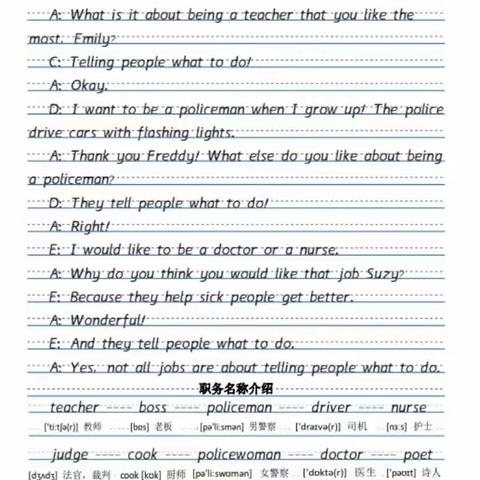 A: What is it about being a teacher that you like the
most, Emily?
C: Telling people what to do!
A: Okay.
D: I want to be a policeman when I grow up! The police
drive cars with flashing lights.
A: Thank you Freddy! What else do you like about being
a policeman?
D: They tell people what to do!
A: Right!
E: I would like to be a doctor or a nurse.
A: Why do you think you would like that job Suzy?
E: Because they help sick people get better.
A: Wonderful!
E: And they tell people what to do.
A: Yes, not all jobs are about telling people what to do.
职务名称介绍
teacher ---- boss ---- policeman ---- driver ---- nurse
['ti:tʃə(r)] 教师 ...[bɒs] 老板 ...[pə'li:smən] 男警察 ...['draɪvə(r)] 司机 ...[nɜ:s] 护士
judge ---- cook ---- policewoman ---- doctor ---- poet
[dʒʌdʒ] 法官，裁判 cook [kʊk] 厨师 [pə'li:swʊmən] 女警察 ...['dɒktə(r)] 医生 ['pəʊɪt] 诗人